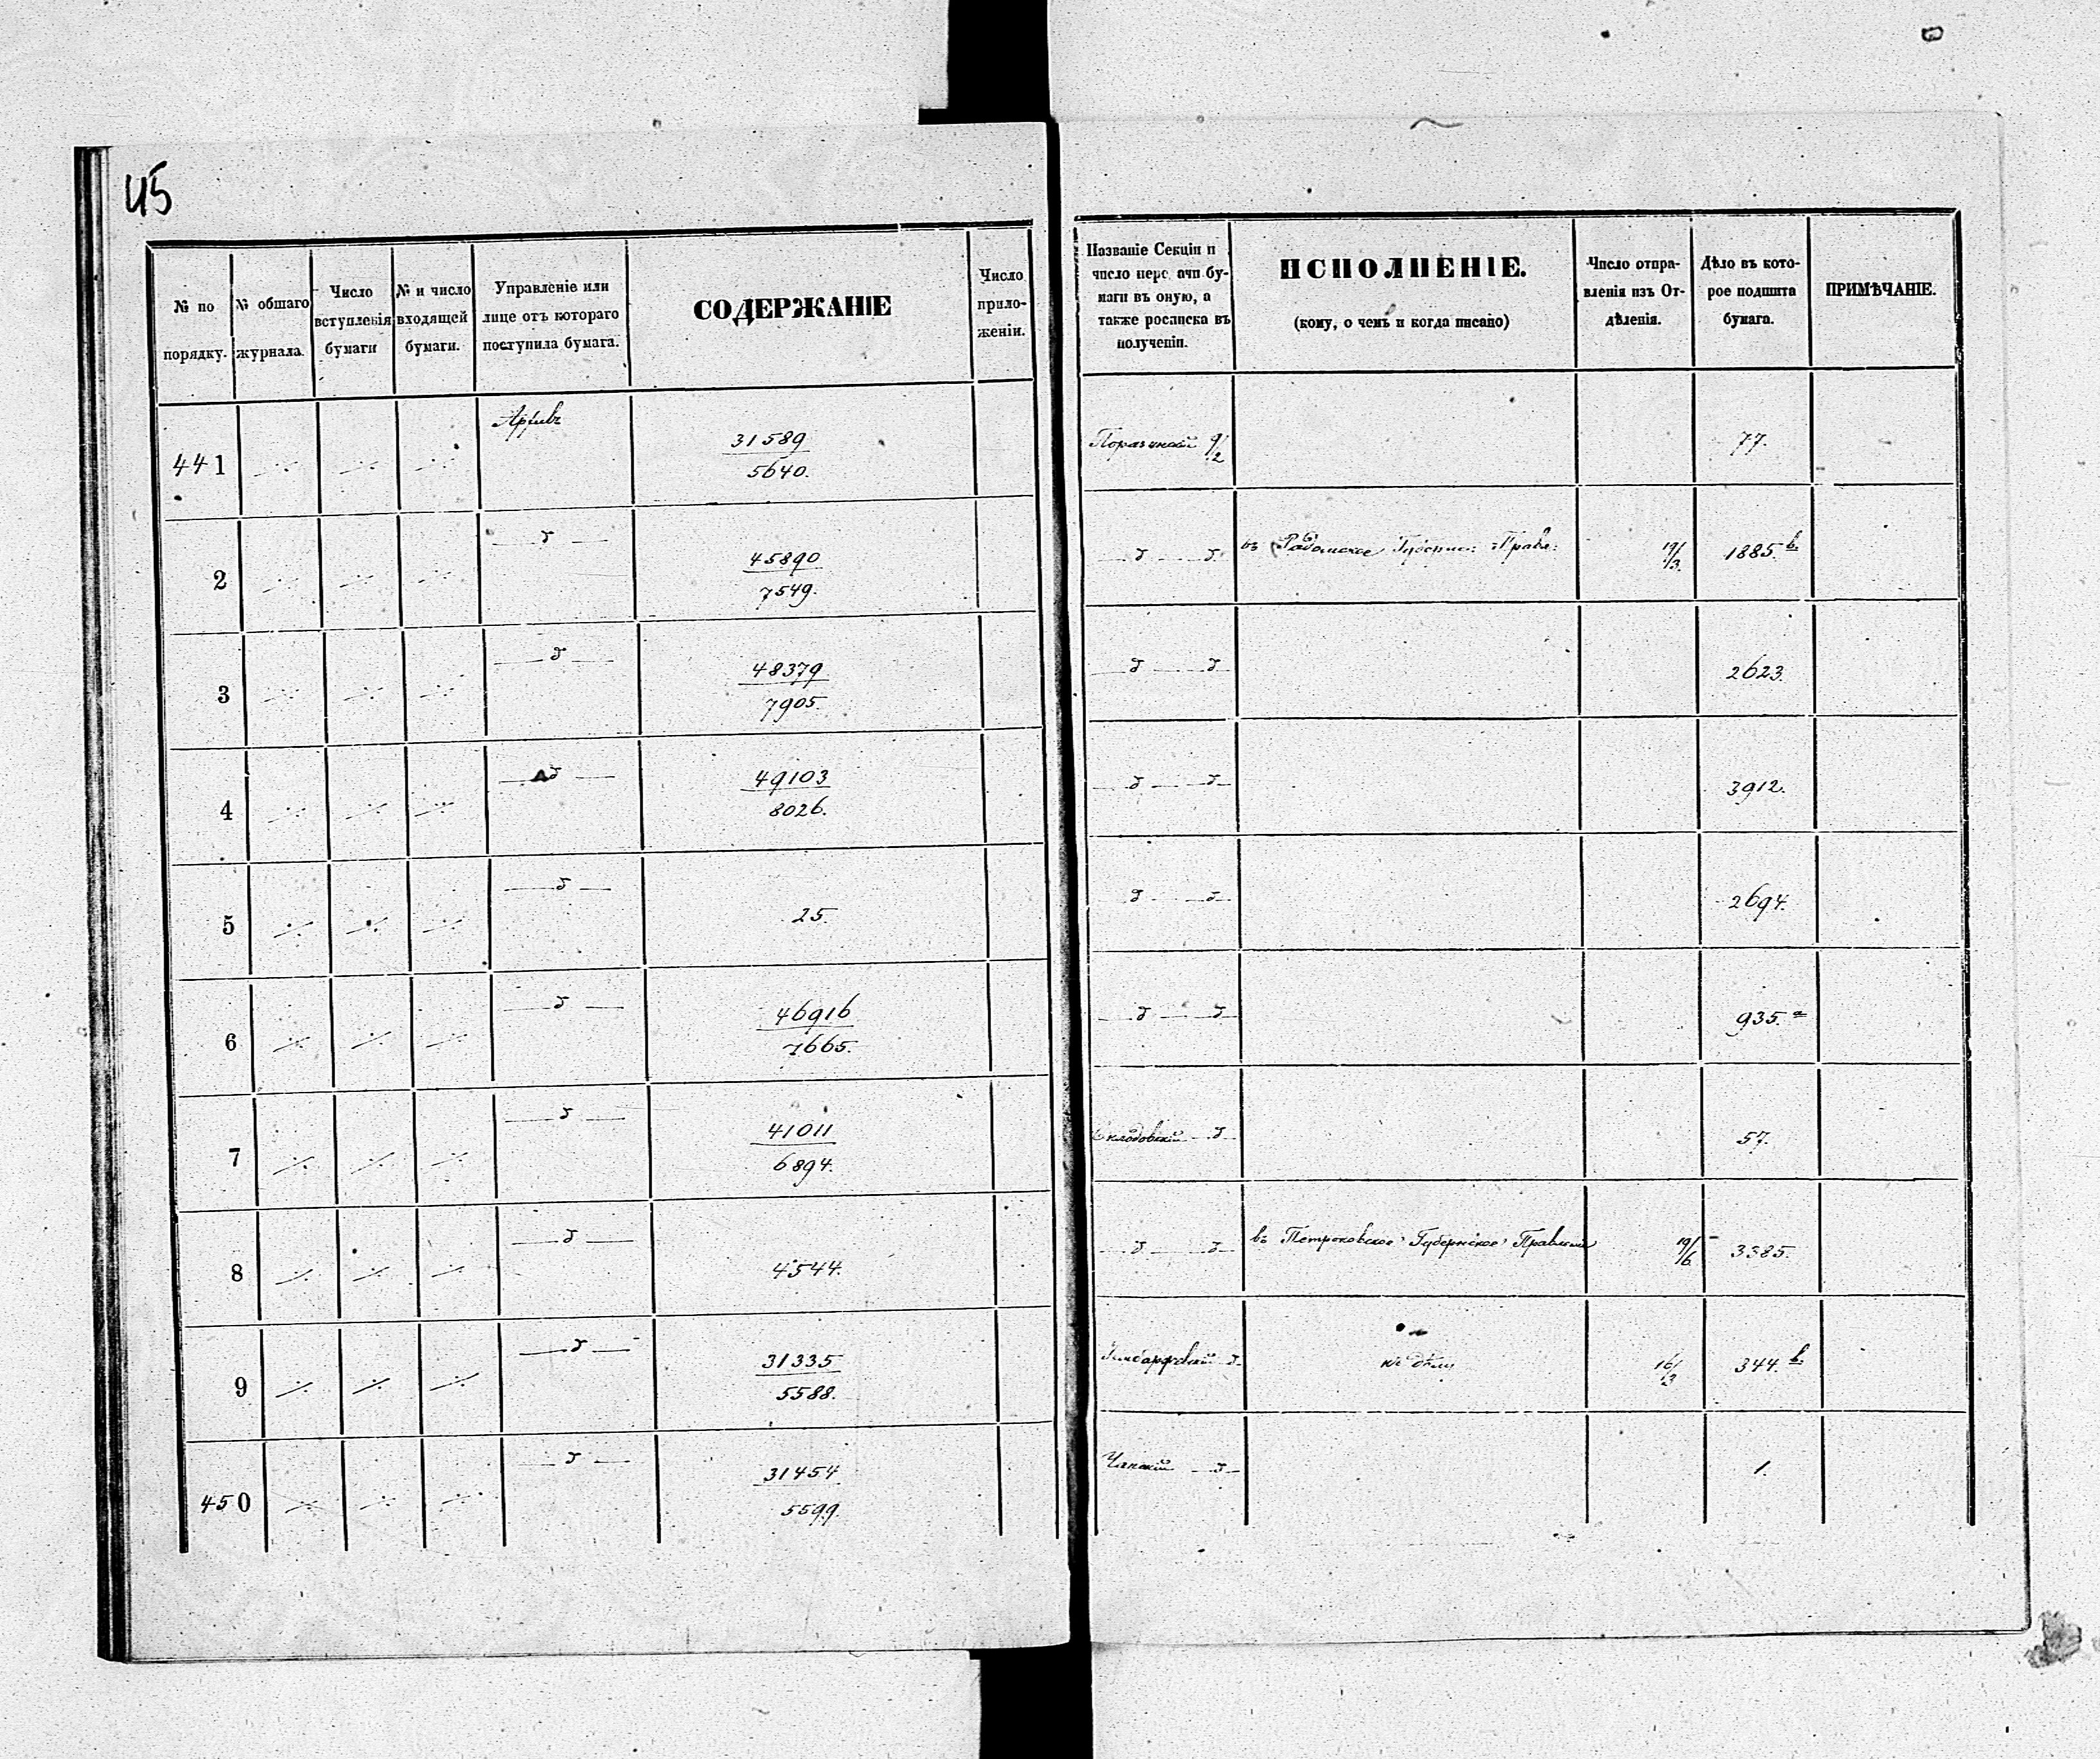 45
№ по порядку.
№ общаго журнала.
Число вступленія бумаги
№ и число входящей бумаги.
Управленіе или лице отъ котораго поступила бумага.
СОДЕРЖАНІЕ
Число приложеніи.
Названіе Секціи и число перс ачи бумаги въ оную, а также росписка въ полученіи.
ИСПОЛНЕНІЕ.
(кому, о чемъ и когда писано)
Число отправленія изъ Отдѣленія.
Дѣло въ которое подшита бумага.
ПРИМѢЧАНІЕ.
441 Архивъ 31589
5640. 9/2 77.
2 45890
7549. въ Радомское Губернс: Правл: 19/3. 1885. b.
3 48379
7905. 2623.
4 49103
8026. 3912.
5 25. 2694.
6 46916
7665. 935. a
7 41011
6894. 57.
8 4544. въ Петроковское Губернское Правленіе 19/6 3385.
9 31335
5588. къ дѣлу 16/3 344. b.
450 31454
5599. 1.